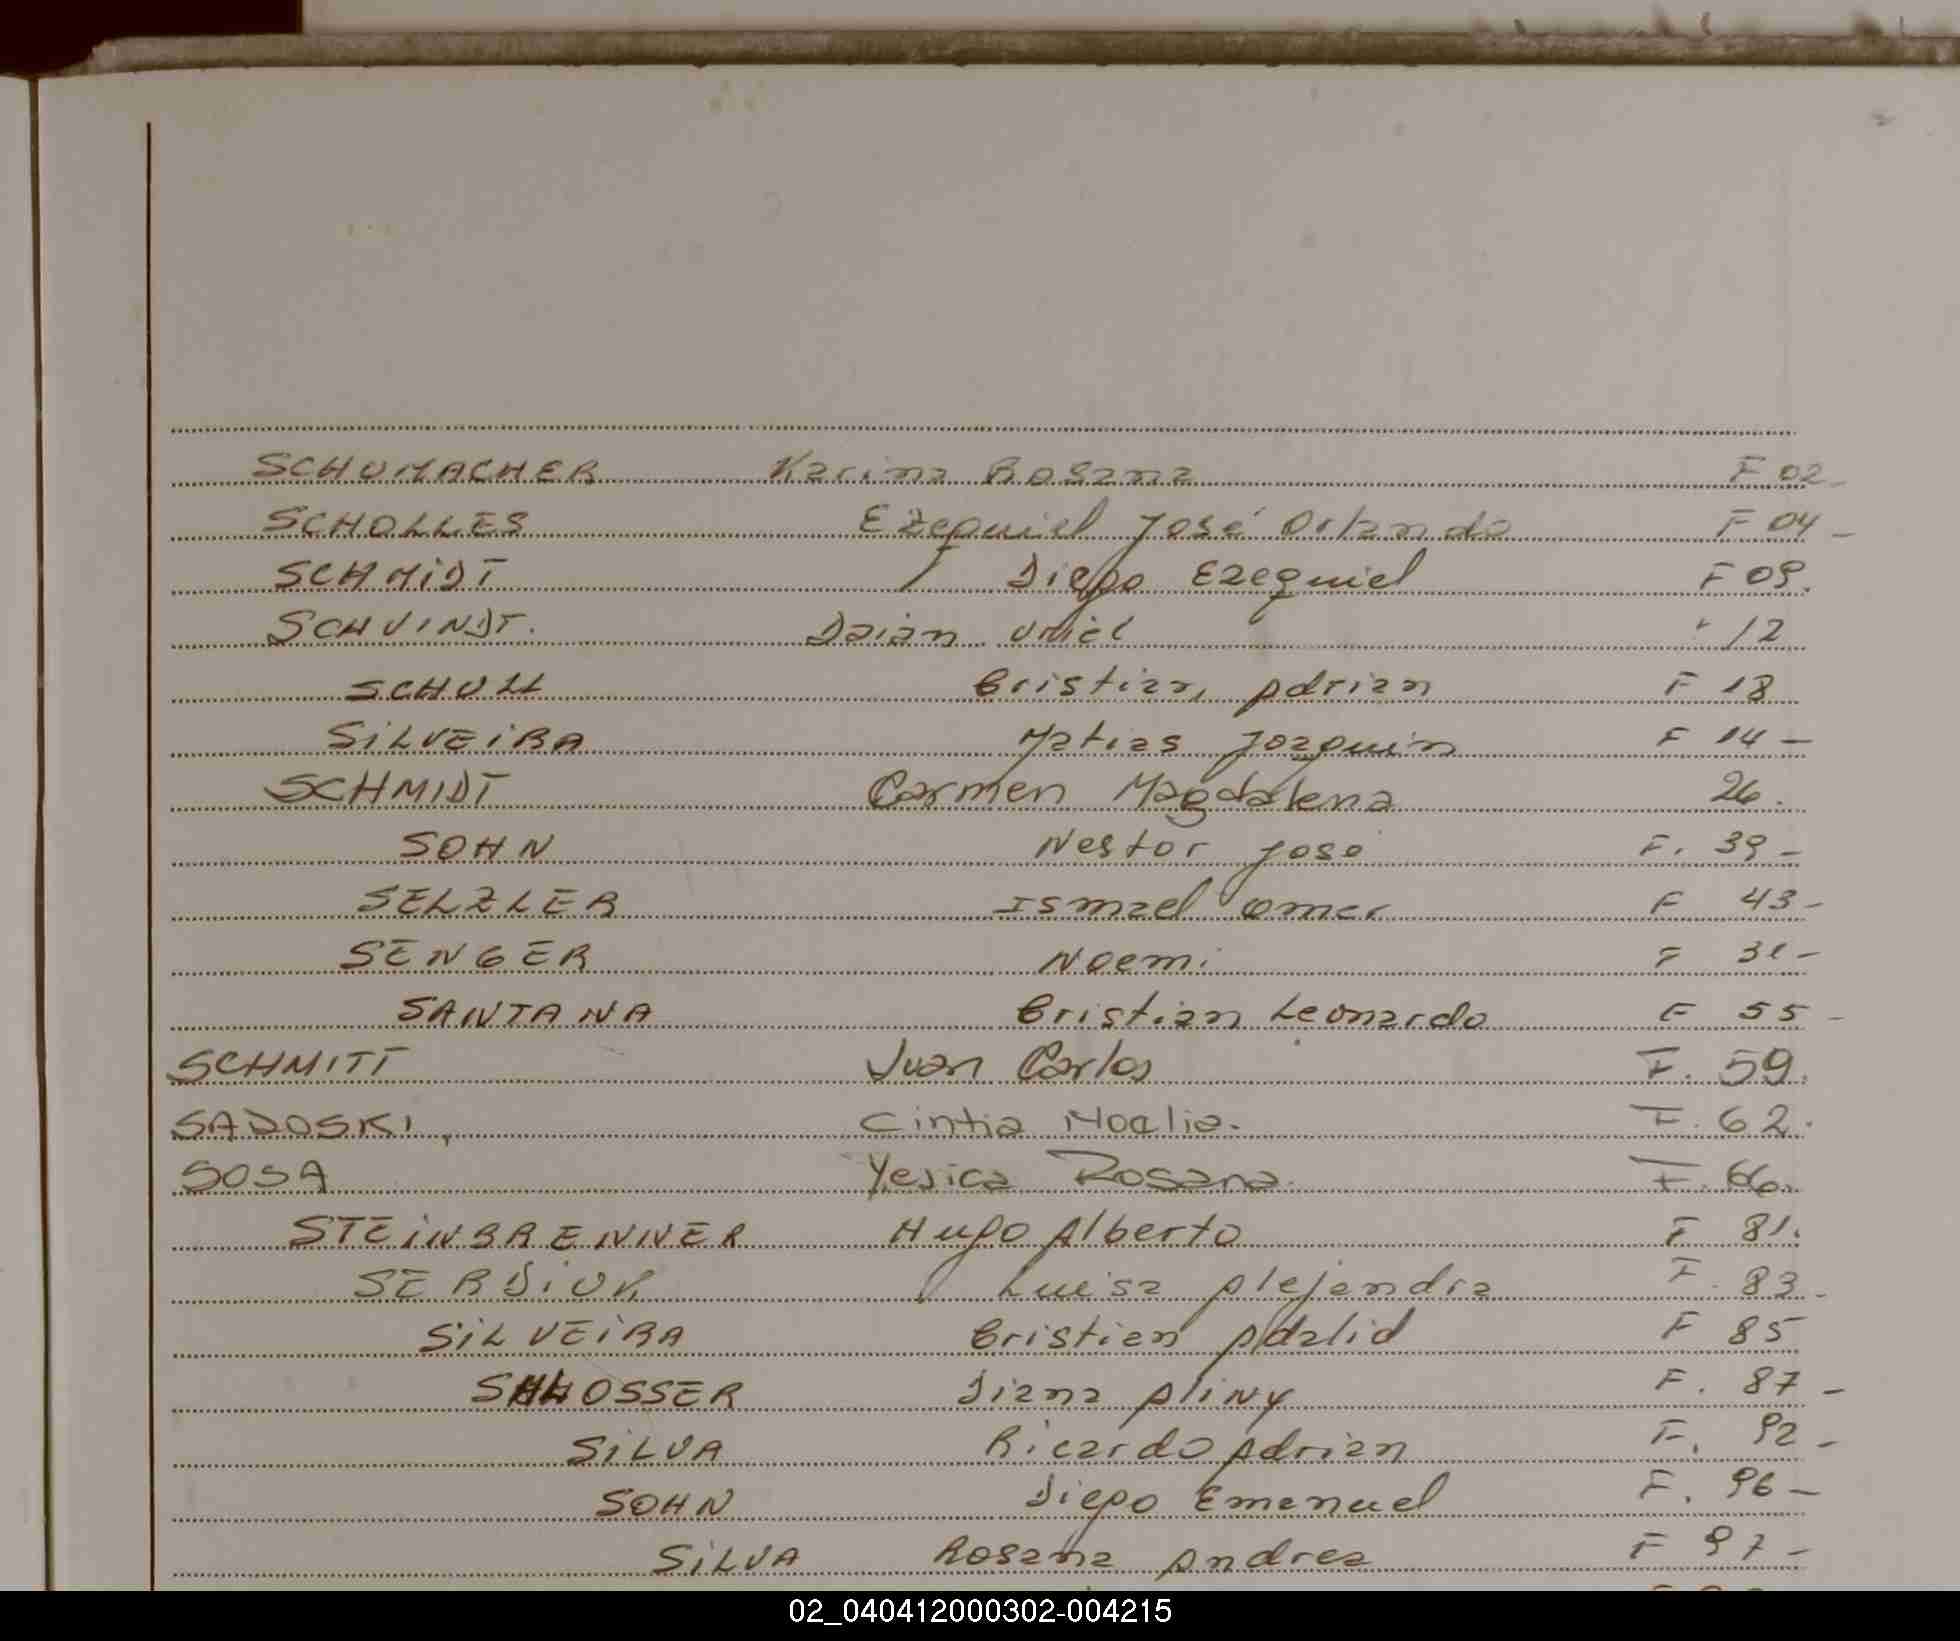 SCHUMACHER Karina Rosana F 02-
SCHOLLES Ezequiel José Orlando F 04-
SCHMIDT Diego Ezequiel F 09.
SCHVINDT. Daian Uriel " 12
SCHULL Cristian Adrian F 18
SILVEIRA Matias Joaquin F 14-
SCHMIDT Carmen Magdalena 26.
SOHN Nestor José F. 39-
SELZLER Ismael Omar F 43-
SENGER Noemi F 31-
SANTANA Cristian Leonardo F 55-
SCHMITT Juan Carlos F. 59.
SADOSKI, Cintia Noelia. F. 62.
SOSA Yesica Rosana. F. 66.
STEINBRENNER Hugo Alberto F 81.
SERDIUK Luisa Alejandra F. 83.
SILVEIRA Cristian Adalid F 85
SHLOSSER Diana Aliny F. 87-
SILVA Ricardo Adrian F. 92-
SOHN Diego Emanuel F. 96-
SILVA Rosana Andrea F 97-
02_040412000302-004215